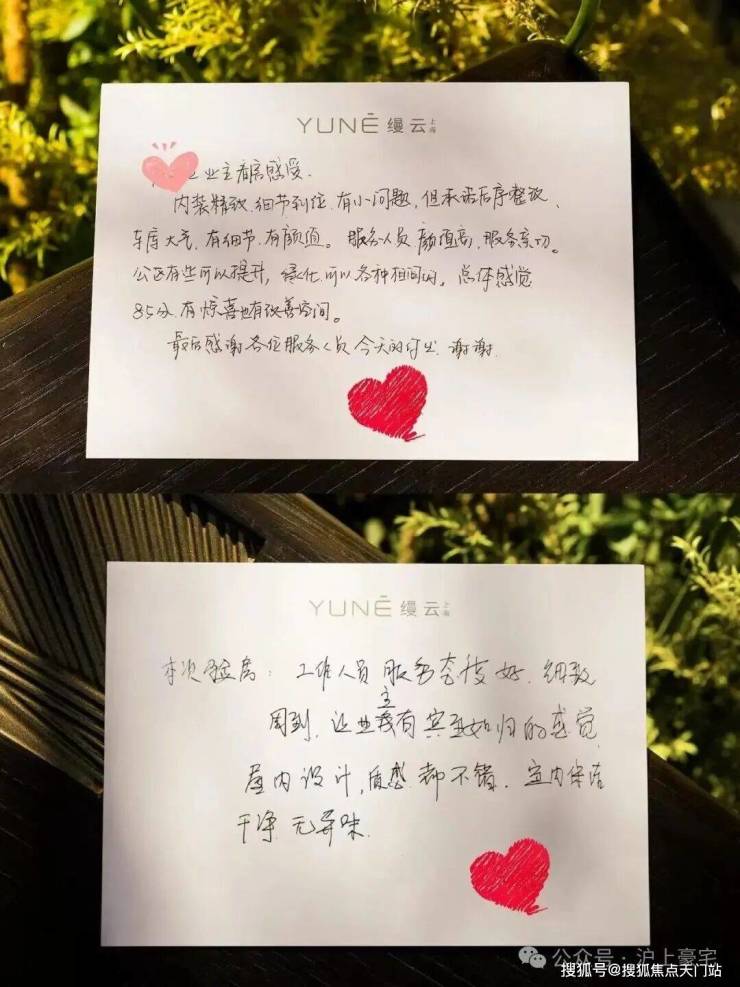 YUNĒ 缦云上海
业主看房感受.
内装精致.细节到位.有小问题,但承诺后序整改、
车库大气.有细节.有颜值。服务人员颜值高,服务亲切。
公区有些可以提升,绿化可以各种相间的。总体感觉
85分.有惊喜也有改善空间。
最后感谢各位服务人员今天的付出.谢谢.
YUNĒ 缦云上海
本次验房:工作人员服务态度好.细致
周到,让业主有宾至如归的感觉
屋内设计,质感都不错.室内保洁
干净无异味.
公众号·沪上豪宅
搜狐号@搜狐焦点天门站